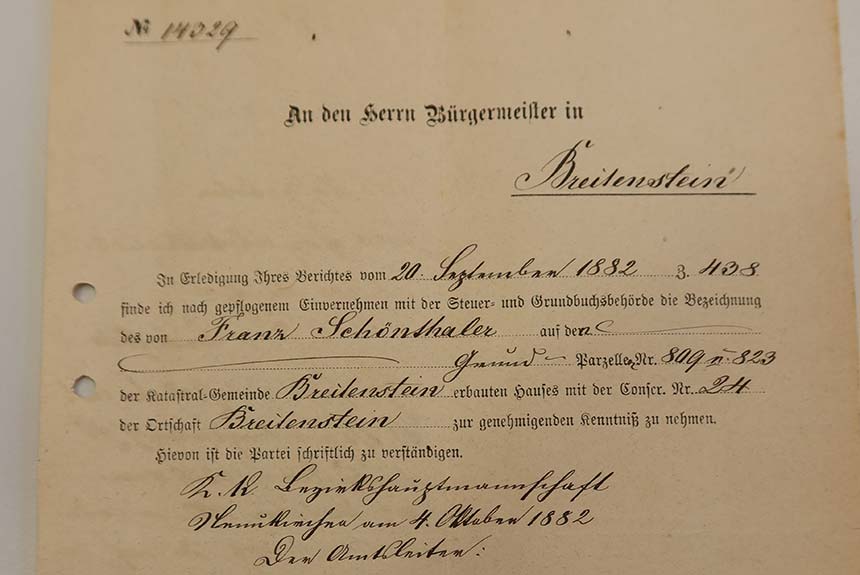 № 14329
An den Herrn Bürgermeister in
Breitenstein
In Erledigung Ihres Berichtes vom 20. September 1882 Z. 438
finde ich nach gepflogenem Einvernehmen mit der Steuer- und Grundbuchsbehörde die Bezeichnung
des von Franz Schönthaler auf den
Grund- Parzellen Nr. 809 u. 823
der Katastral-Gemeinde Breitenstein erbauten Hauses mit der Conscr. Nr. 24
der Ortschaft Breitenstein zur genehmigenden Kenntniß zu nehmen.
Hievon ist die Partei schriftlich zu verständigen.
K. K. Bezirkshauptmannschaft
Neunkirchen am 4. Oktober 1882
Der Amtsleiter: